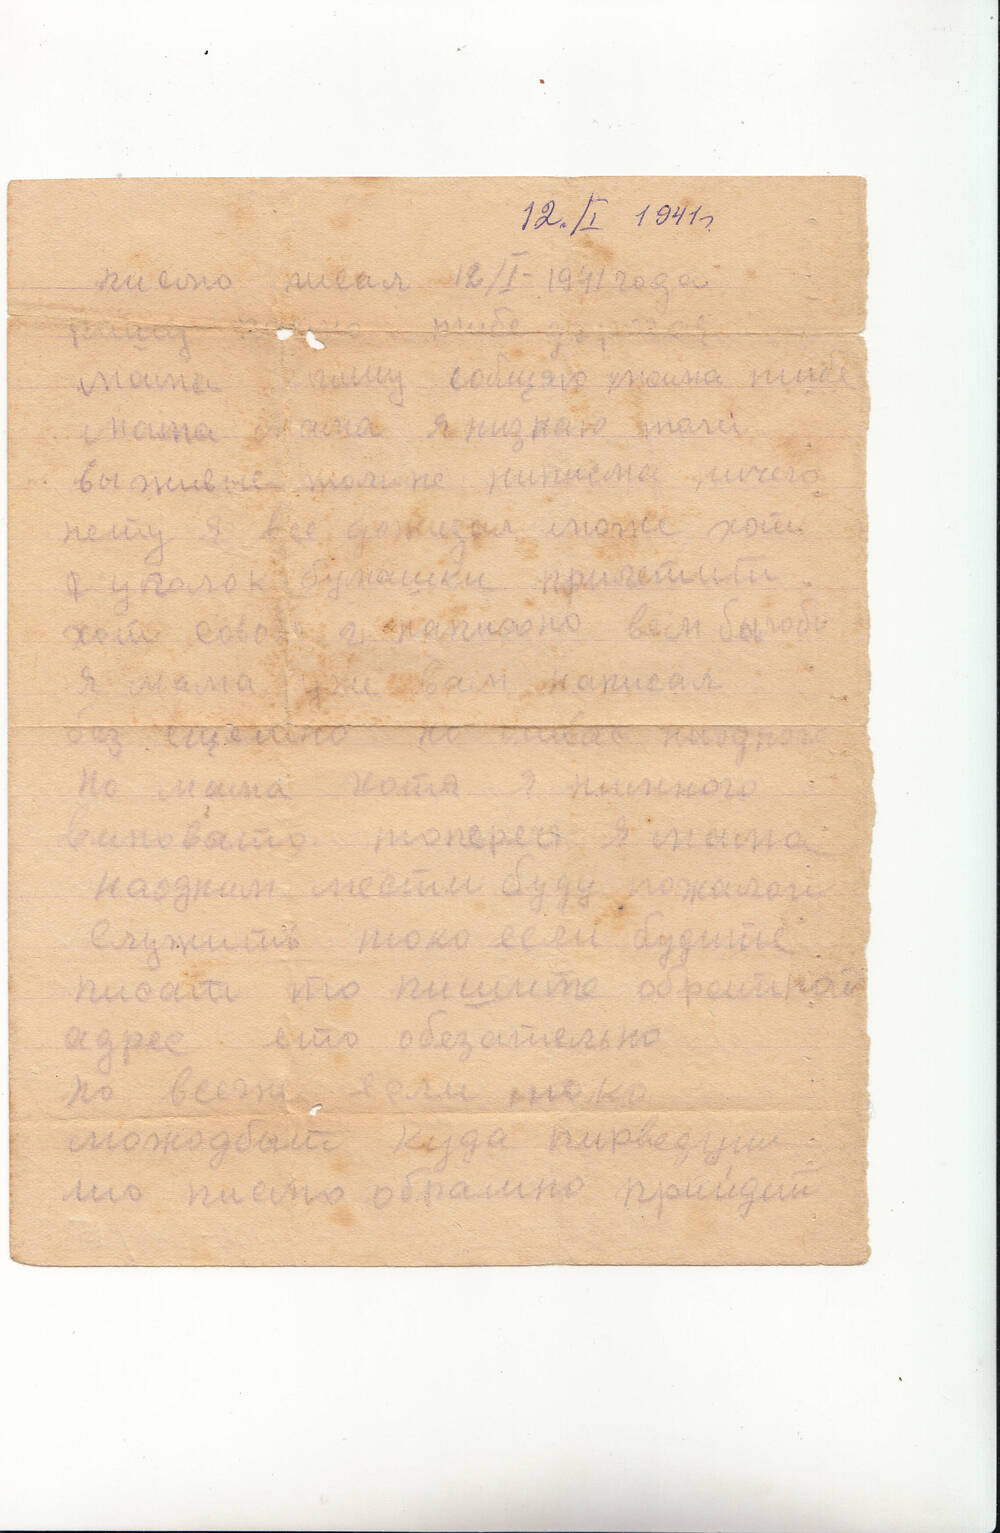 12./I 1941г.
писмо писал 12/I-1941 года
пишу писмо тибе дорогая
мама пишу собщяю мама тибе
мама мама я низнаю толи
вы живые толи не ниписма ничего
нету я все дожидал може хоть
уголок бумашки причетити
хоть слово написоно вем былобы
я мама уже вам написал
без но ниодного
но мама хотя я нимного
виновато топереч я мама
наодним мести буду пожалои
служить токо если будите
писат то пишите обратнои
адрес ето обезательно
но всеже если токо
можодбыт куда пирведут
то писмо обратно прийдит